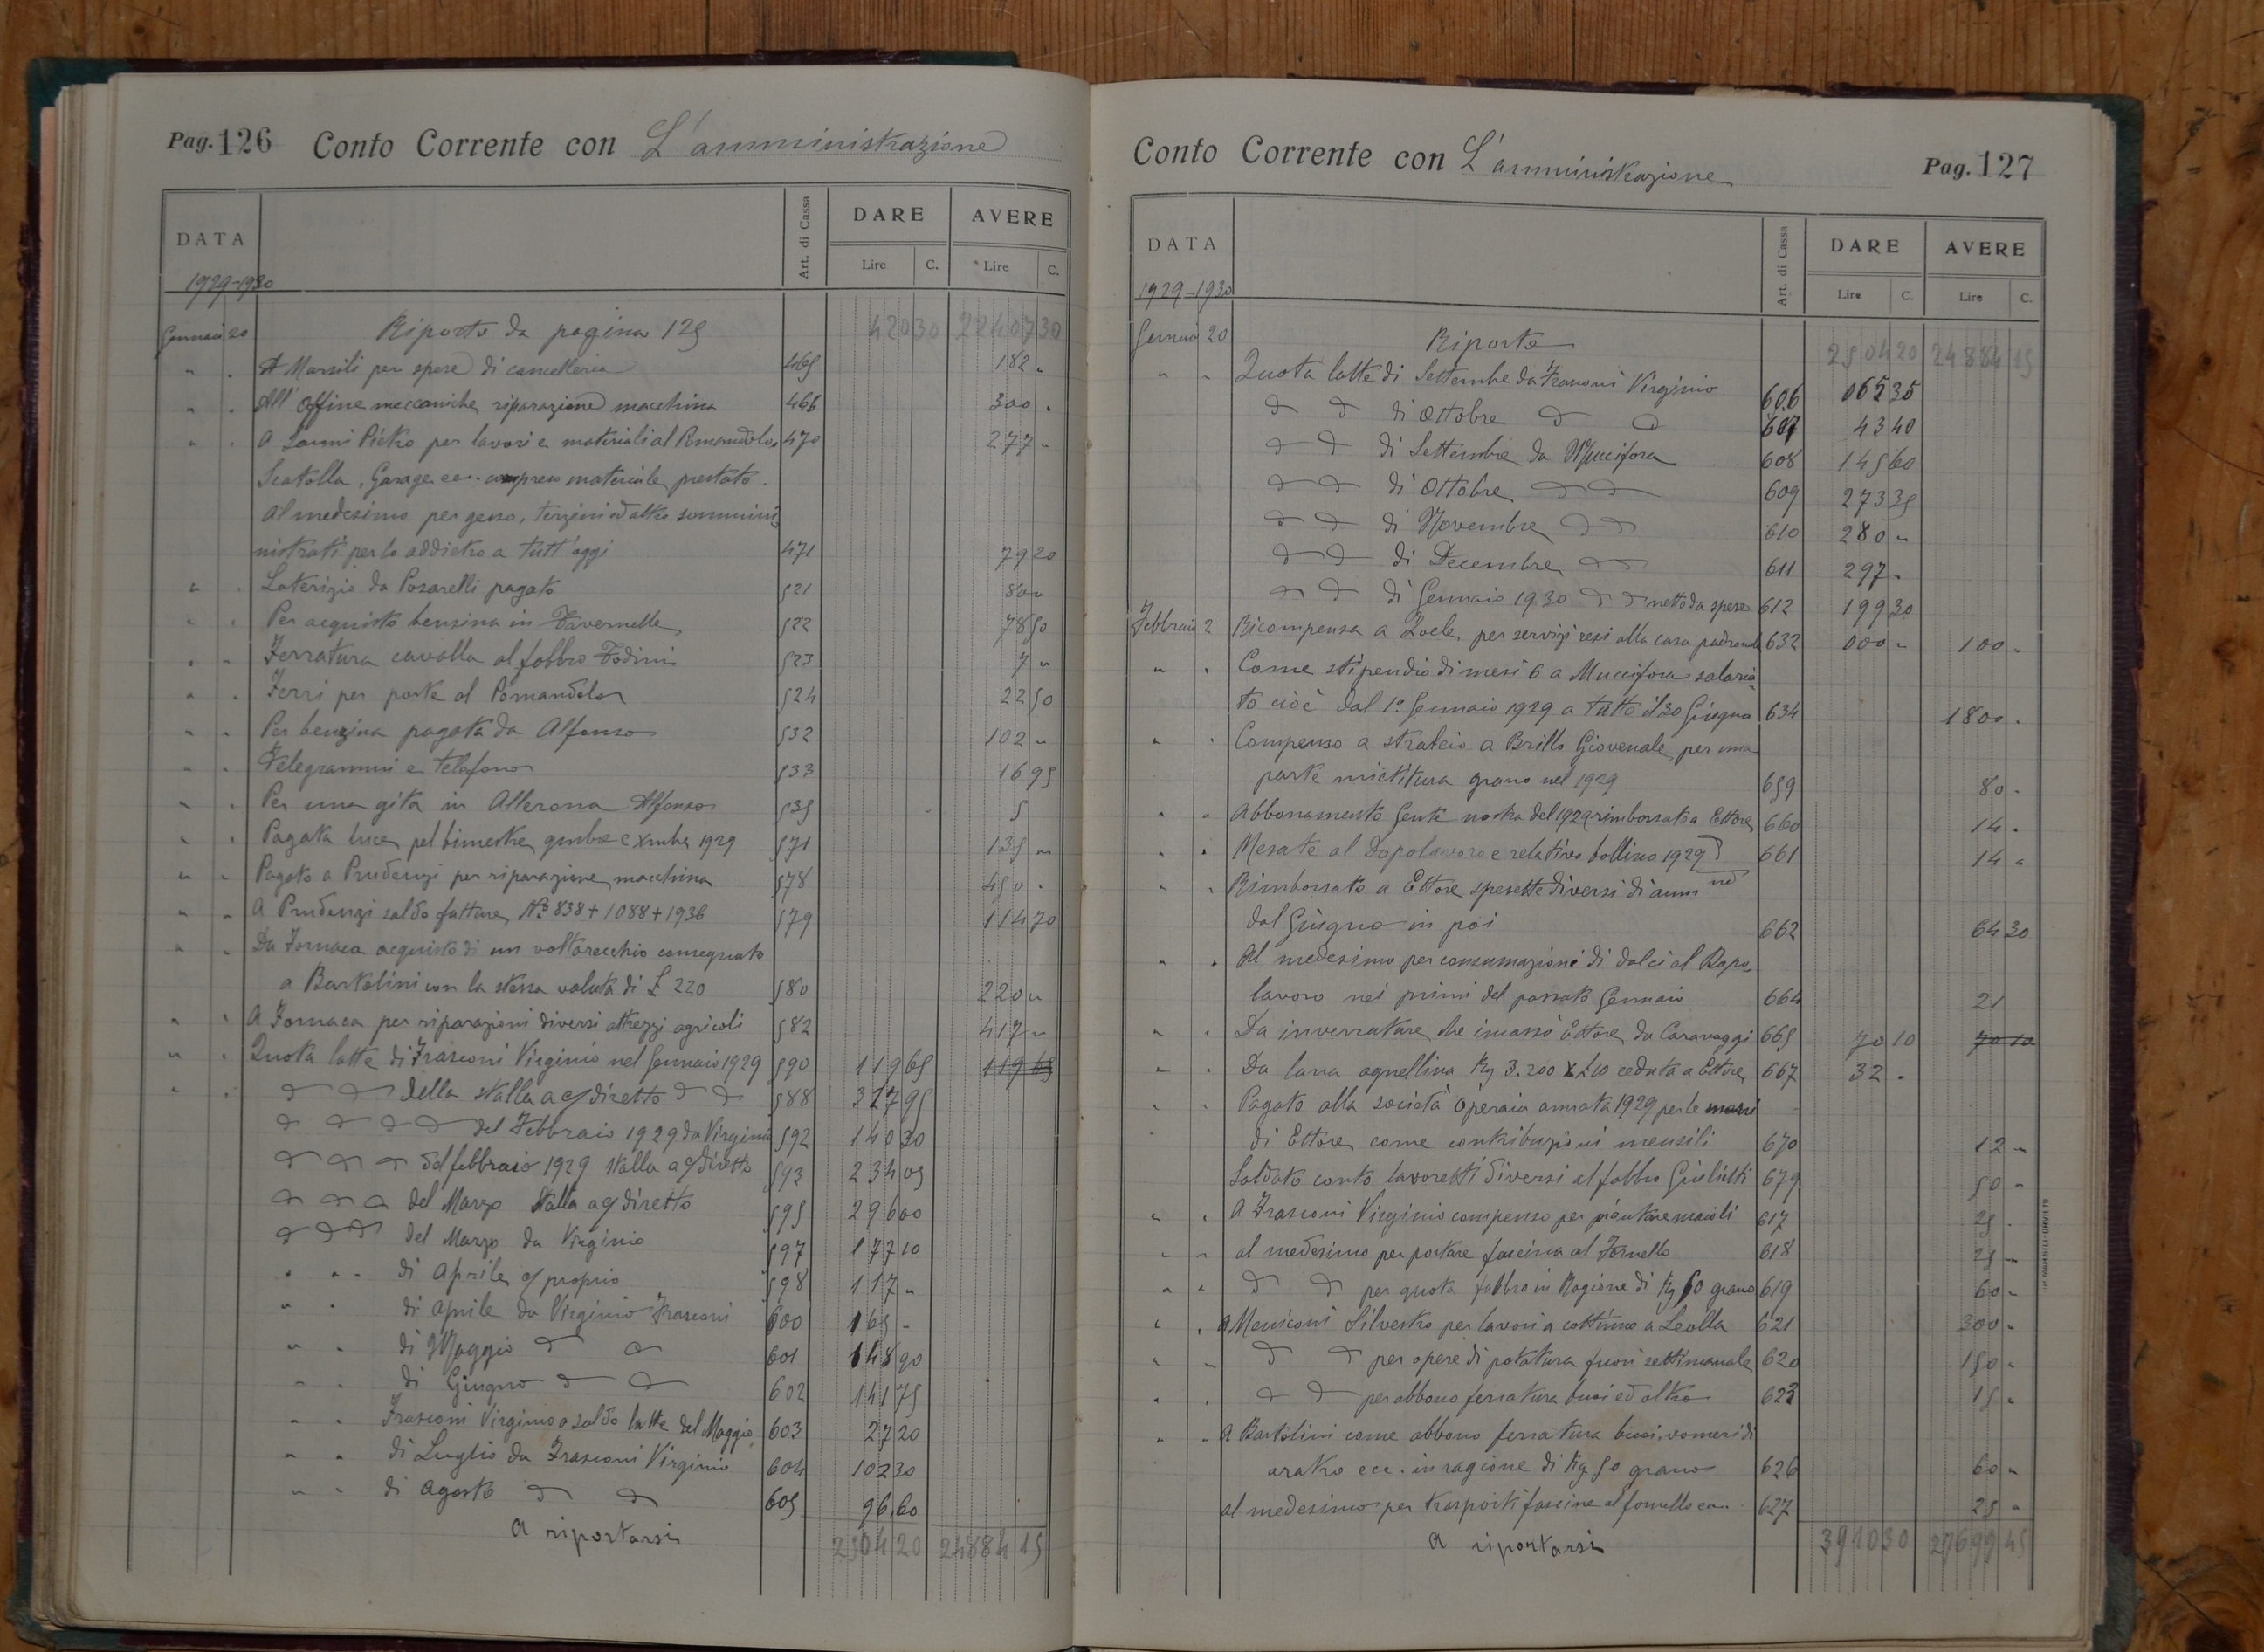 Pag. 126 Conto Corrente con L'amministrazione
DATA Art. di Cassa DARE AVERE
Lire C. Lire C.
1929-1930
Gennaio 20 Riporto da pagina 125 420 30 22407 30
" . A Marsili per spese di cancelleria 465 182 "
" . All' Offine meccaniche riparazione macchina 466 300 .
" . A Pietro per lavori e materiali al 470 277 "
Scatolla, Garage ecc. compreso materiale prestato.
Al medesimo per gesso, ed altro sommini
nistrati per lo addietro a tutt'oggi 471 79 20
" . Laterizio da Posarelli pagato 521 80 "
" . Per acquisto benzina in Tavernelle 522 78 50
. " Ferratura cavalla al fabbro Todini 523 7 "
" . Ferri per porte al Pomandolo 524 22 50
" " Per benzina pagata da Alfonso 532 102 "
" " Telegrammi e telefono 533 16 95
" . Per una gita in Allerona Alfonso 535 5
" . Pagata luce pel bimestre 9mbre e Xmbre 1929 571 135 "
" " Pagato a Prudenzi per riparazione macchina 578 450 .
" " A Prudenzi saldo fatture Nº 838 + 1088 + 1936 579 114 70
" " Da Fornaca acquisto di un voltarecchio consegnato
a Bartolini con la stessa valuta di £ 220 580 220 "
" . A Fornaca per riparazioni diversi attrezzi agricoli 582 417 "
" . Quota latte di Frasconi Virginio nel Gennaio 1929 590 119 65 119 65
" . della stalla a c/ diretto 588 317 95
del Febbraio 1929 da Virginio 592 140 30
del febbraio 1929 stalla a c/ diretto 593 234 05
del Marzo Stalla a c/ diretto 595 296 00
del Marzo da Virginio 597 177 10
" " " di Aprile c/ proprio 598 117 "
" " di Aprile da Virginio Frasconi 600 165 -
" " di Maggio 601 148 90
" " di Giugno 602 141 75
" " Frasconi Virginio a saldo latte del Maggio 603 27 20
" " di Luglio da Frasconi Virginio 604 102 30
" " di Agosto 605 96,60
A riportarsi 2504 20 24884 15
Conto Corrente con L'amministrazione Pag. 127
DATA Art. di Cassa DARE AVERE
Lire C. Lire C.
1929-1930
Gennaio 20 Riporto 2504 20 24884 15
" " Quota latte di Settembre da Frasconi Virginio 606 065 35
di Ottobre 607 43 40
di Settembre da Muccifora 608 145 60
di Ottobre 609 273 35
di Novembre 610 280 "
di Decembre 611 297 .
di Gennaio 1930 netto da spese 612 199 30
Febbraio 2 Ricompensa a Zoele per servizi resi alla casa padronale 632 000 " 100 .
" . Come stipendio di mesi 6 a Muccifora salaria
to cioè dal 1º Gennaio 1929 a tutto il 30 Giugno 634 1800 .
" . Compenso a stralcio a Brillo Giovenale per una
parte mietitura grano nel 1929 659 80 .
" " Abbonamento Gente nostra del 1929 rimborsato a Ettore 660 14 .
" . Mesate al Dopolavoro e relativo bollino 1929 661 14 "
" . Rimborsato a Ettore spesette diversi di anni
dal Giugno in poi 662 64 30
" . Al medesimo per consumazione di dolci al Dopo
lavoro nei primi del passato Gennaio 664 21
" . Da inverrature che incassò Ettore da Caravaggi 665 70 10 70 10
" . Da lana agnellina Kg 3.200 x £ 10 ceduta a Ettore 667 32 .
" . Pagato alla società Operaia annata 1929 per le
di Ettore come contribuzioni mensili 670 12 "
Saldato conto lavoretti diversi al fabbro Giulietti 679 50 "
" . A Frasconi Virginio compenso per piantare maioli 617 25 .
" " al medesimo per portare fascina al Fornello 618 25 "
" " per quota fabbro in Ragione di Kg 60 grano 619 60 "
" . a Meniconi Silvestro per lavori a cottimo a Leolla 621 300 "
" " per opere di potatura fuori settimanale 620 150 .
" . per abbono ferratura buoi ed altro 623 15 "
" " A Bartolini come abbono ferratura buoi, vomeri di
aratro ecc. in ragione di Kg 50 grano 626 60 "
al medesimo per trasporti fascine al fornello ecc. 627 25 "
A riportarsi 3910 30 27699 45